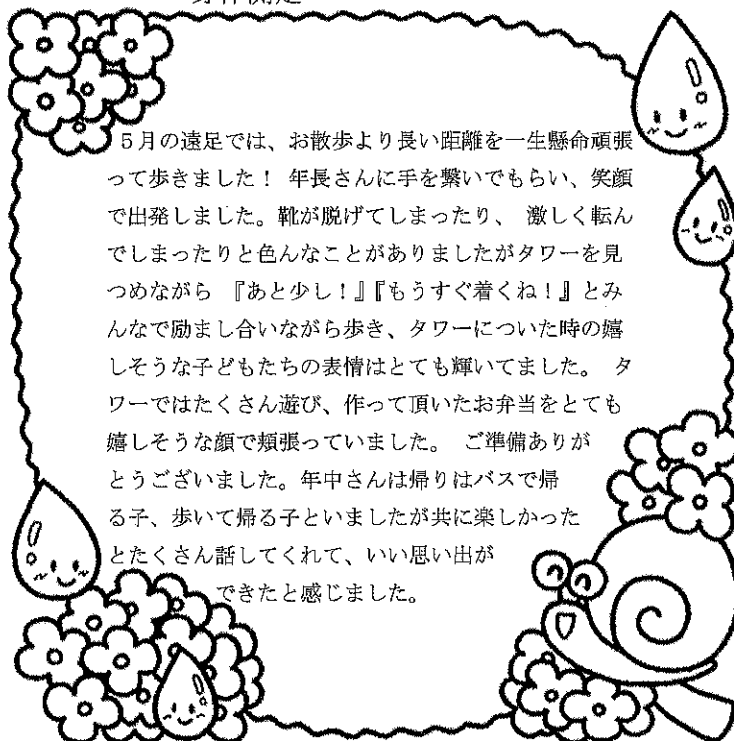 5月の遠足では、お散歩より長い距離を一生懸命頑張
って歩きました！ 年長さんに手を繋いでもらい、笑顔
で出発しました。靴が脱げてしまったり、 激しく転ん
でしまったりと色んなことがありましたがタワーを見
つめながら 『あと少し！』『もうすぐ着くね！』とみ
んなで励まし合いながら歩き、タワーについた時の嬉
しそうな子どもたちの表情はとても輝いてました。 タ
ワーではたくさん遊び、作って頂いたお弁当をとても
嬉しそうな顔で頬張っていました。 ご準備ありが
とうございました。年中さんは帰りはバスで帰
る子、歩いて帰る子といましたが共に楽しかった
とたくさん話してくれて、いい思い出が
できたと感じました。